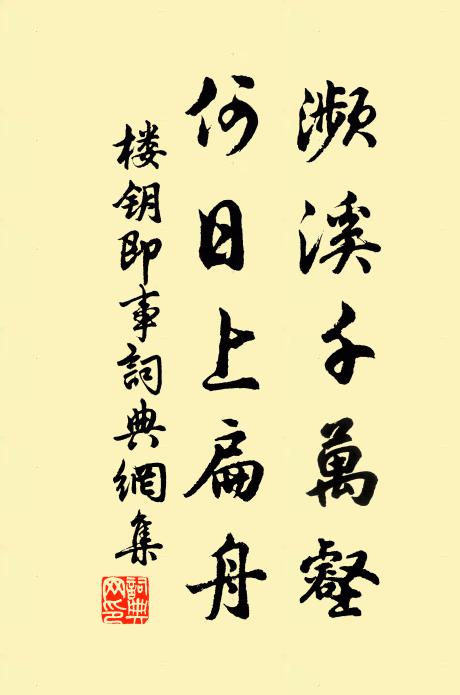 濒溪千萬壑
何日上扁舟
楼钥即事詞典網集
詞典網印